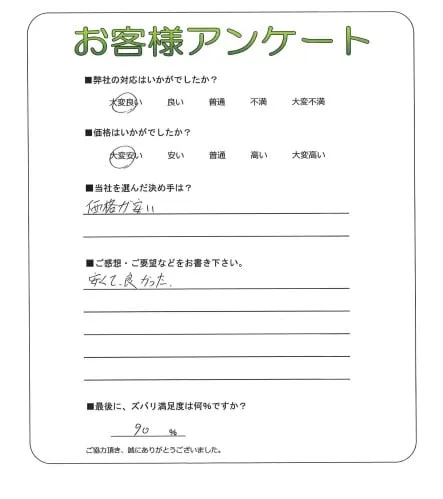 お客様アンケート
■弊社の対応はいかがでしたか？
大変良い 良い 普通 不満 大変不満
■価格はいかがでしたか？
大変安い 安い 普通 高い 大変高い
■当社を選んだ決め手は？
価格が安い
■ご感想・ご要望などをお書き下さい。
安くて、良かった。
■最後に、ズバリ満足度は何％ですか？
90 ％
ご協力頂き、誠にありがとうございました。